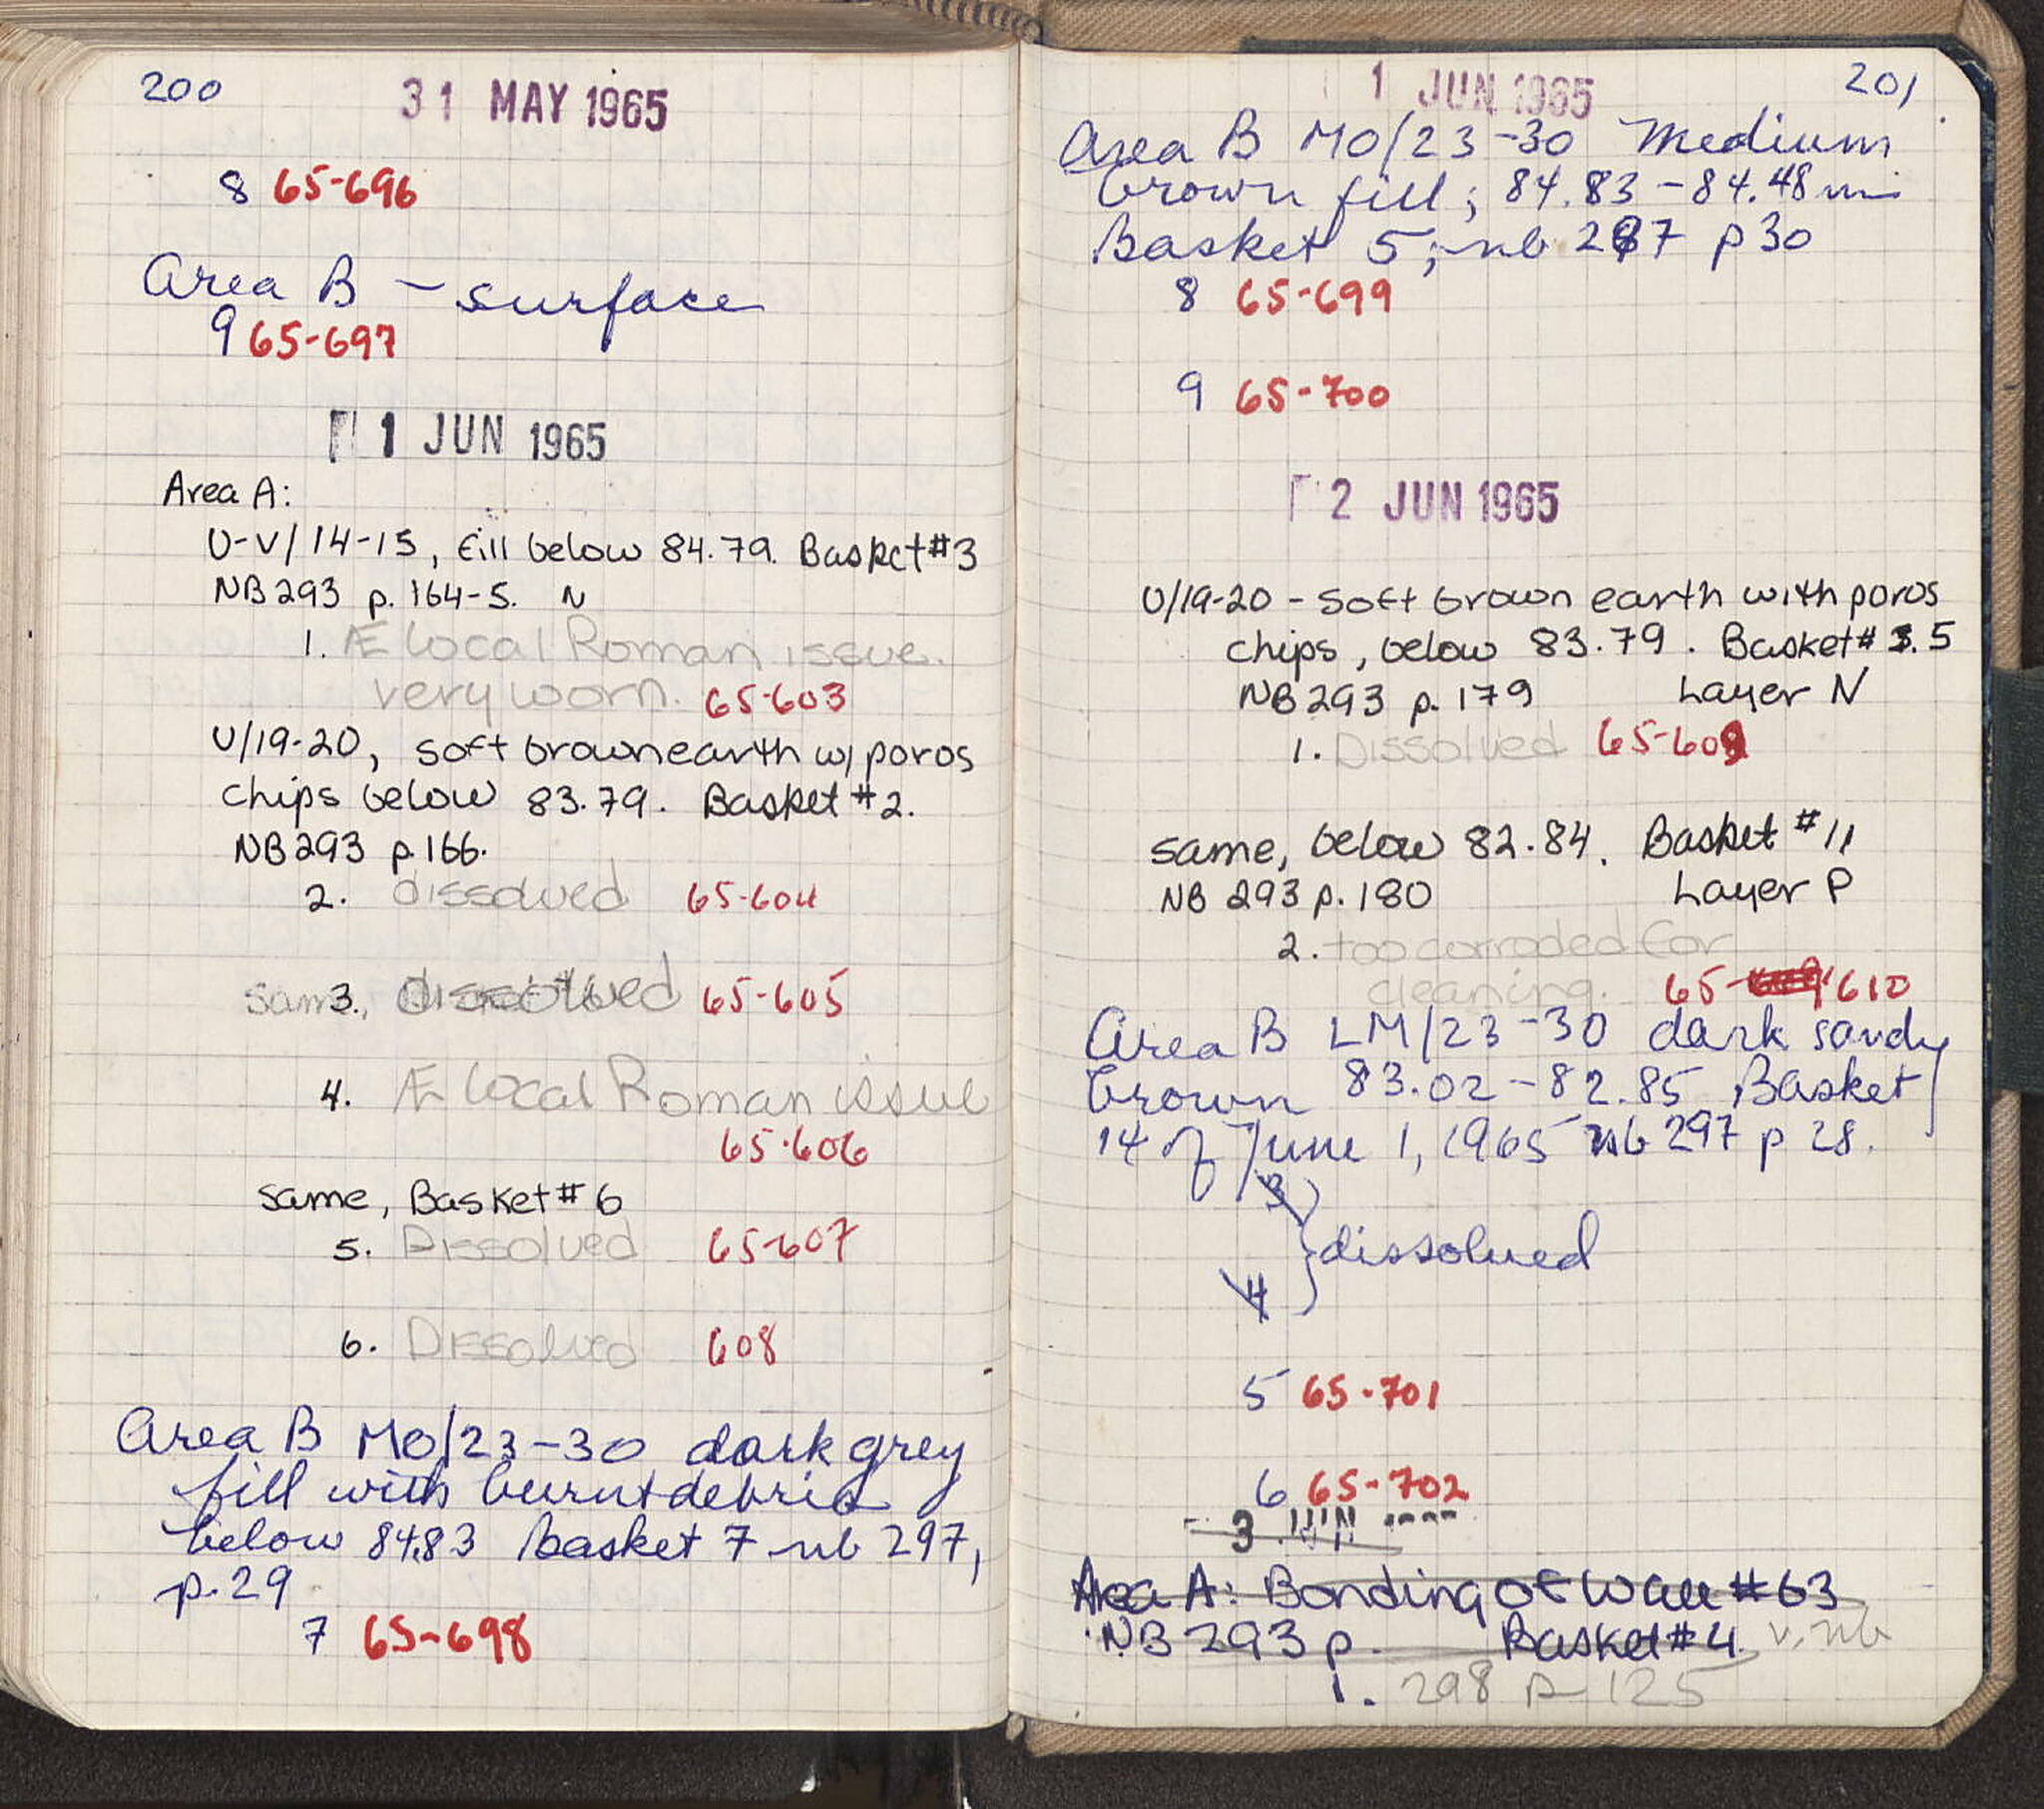 200
31 MAY 1965
8 65-696
Area B – surface
9 65-697
1 JUN 1965
Area A:
U-V/14-15, fill below 84.79. Basket #3
NB 293 p. 164-5. N
1. Æ local Roman issue.
very worn. 65-603
U/19-20, soft brown earth w/ poros
chips below 83.79. Basket #2.
NB 293 p. 166.
2. dissolved 65-604
Same, 3. dissolved 65-605
4. Æ local Roman issue
65-606
same, Basket #6
5. Dissolved 65-607
6. Dissolved 608
Area B MO/23-30 dark grey
fill with burnt debris
below 84.83 Basket 7 nb 297,
p. 29
7 65-698
201
1 JUN 1965
Area B MO/23-30 Medium
brown fill; 84.83-84.48 m
Basket 5; nb 297 p 30
8 65-699
9 65-700
2 JUN 1965
U/19-20 - soft brown earth with poros
chips, below 83.79. Basket # 5
NB 293 p. 179 Layer N
1. Dissolved 65-609
same, below 82.84. Basket #11
NB 293 p. 180 Layer P
2. too corroded for
cleaning. 65-610
Area B LM/23-30 dark sandy
brown 83.02-82.85 Basket
14 of June 1, 1965 nb 297 p 28.
3
} dissolved
4
5 65-701
6 65-702
3
Area A: Bonding of Wall #63
NB 293 p. Basket #4. v. nb
1. 298 p 125